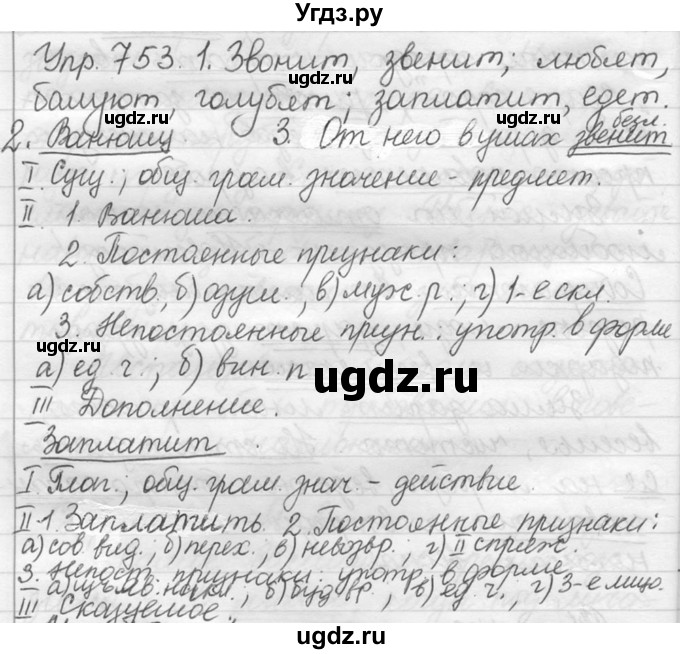 Угдз.ру
Упр. 753. 1. Звонит, звенит; любят,
балуют, голубят; заплатит, едет.
безл.
2. Ванюшу. 3. От него в ушах звенит
I. Сущ.; общ. грам. значение - предмет.
II. 1. Ванюша.
2. Постоянные признаки:
а) собств.; б) одуш.; в) муж. р.; г) 1-е скл.
3. Непостоянные призн.: употр. в форме
а) ед. ч.; б) вин. п.
III Дополнение.
Заплатит
I Глаг.; общ. грам. знач. - действие.
II 1. Заплатить. 2. Постоянные признаки:
а) сов. вид.; б) перех.; в) невозвр.; г) II спряж.
3. Непост. признаки: употр. в форме
а) изъяв. накл.; б) буд. вр.; в) ед. ч.; г) 3-е лицо.
III Сказуемое.
ugdz.ru
ugdz.ru
ugdz.ru
ugdz.ru
ugdz.ru
ugdz.ru
ugdz.ru
ugdz.ru
ugdz.ru
ugdz.ru
ugdz.ru